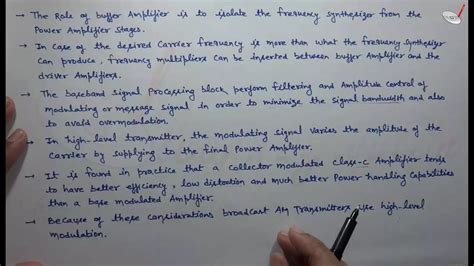 → The Role of buffer Amplifier is to isolate the frequency synthesizer from the
Power Amplifier Stages.
→ In case of the desired Carrier frequency is more than what the frequency synthesizer
Can produce, frequency multipliers can be inserted between buffer Amplifier and the
driver Amplifiers.
→ The baseband signal Processing block perform filtering and Amplitude control of
modulating or message signal in order to minimize the signal bandwidth and also
to avoid overmodulation.
→ In high-level transmitter, the modulating signal varies the amplitude of the
Carrier by supplying to the final Power Amplifier.
→ It is found in practice that a collector modulated class-C Amplifier tends
to have better efficiency, low distortion and much better Power handling Capabilities
than a base modulated Amplifier.
→ Because of these considerations broadcast AM Transmitters use high-level
modulation.